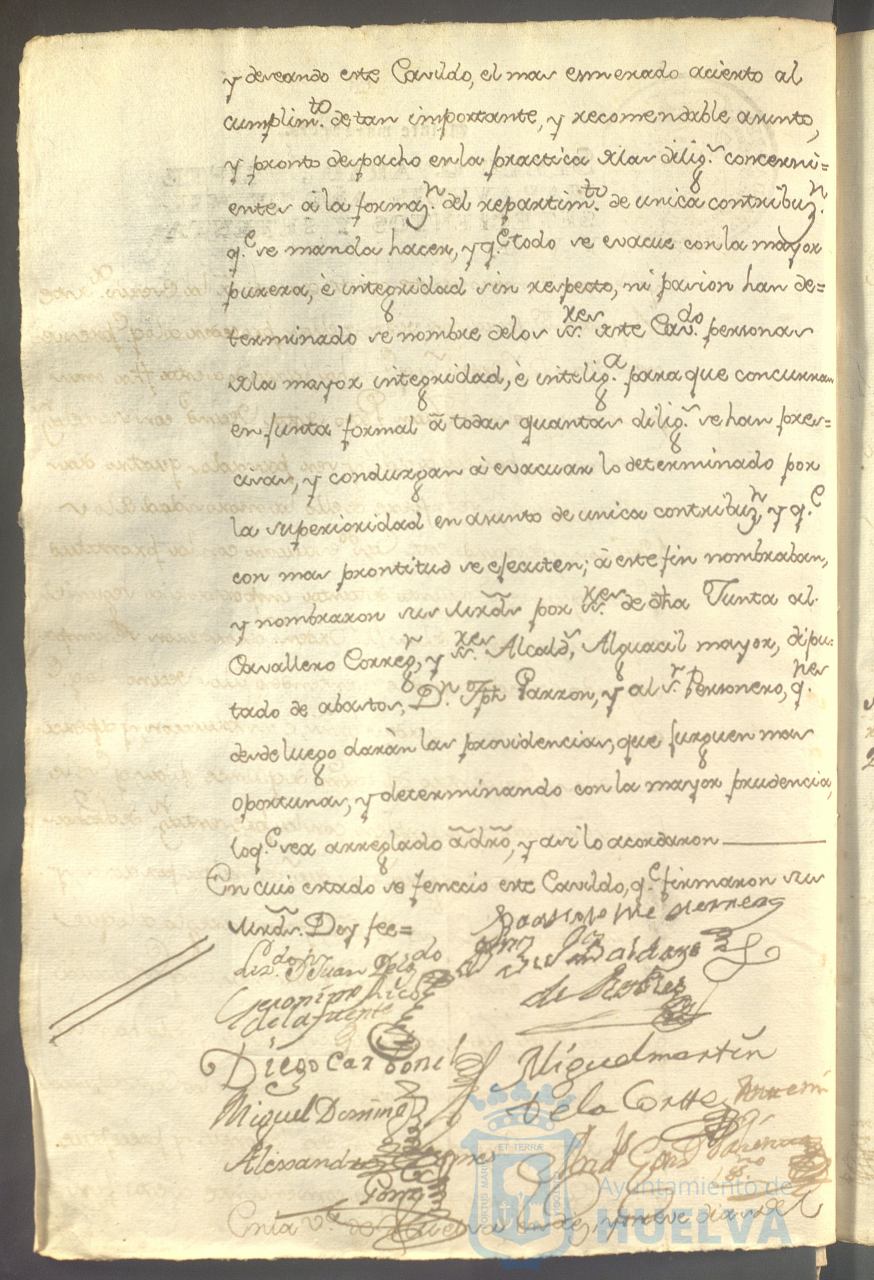 y deseando este Cavildo, el mas esmerado acierto al
cumplim.to de tan importante, y recomendable asunto,
y pronto despacho en la practica de las dilig.s concerni=
entes à la formaz.n del repartim.to de unica contribuz.n
q.e se manda hacer, y q.e todo se evacue con la mayor
pureza, è integridad sin respecto, ni pasion han de=
terminado se nombre de los ss.res de este Cav.do personas
de la mayor integridad, è intelig.a para que concurran
en junta formal ã todas quantas dilig.s se han pres=
cisas, y conduzgan à evacuar lo determinado por
la superioridad en asunto de unica contribuz.n y q.e
con mas prontitud se ejecuten; à este fin nombraban,
y nombraron sus mrds. por ss.res de dha Junta al
Cavallero Correg.r, y ss.res Alcalds, Alguacil mayor, dipu=
tado de abastos, D.n Jph Parron, y al s.r Personero, q.nes
desde luego daràn las providencias, que jurguen mas
oportunas, y determinando con la mayor prudencia,
loq.e sea arreglado ã dro, y asi lo acordaron
En cuio estado se fenecio este Cavildo, q.e firmaron sus
mrds. Doy fee=
Liz.do D.n Juan
Geronimo
de la fuente
de Robles
Diego Carbonel
Miguel martin
de la Corte
Miguel Domin
Alessandro
Ponze
En la v.a de Huelva en diez y nueve dias del
ET TERRÆ
PORTUS MARIS
CUSTODIA
Ayuntamiento de
HUELVA